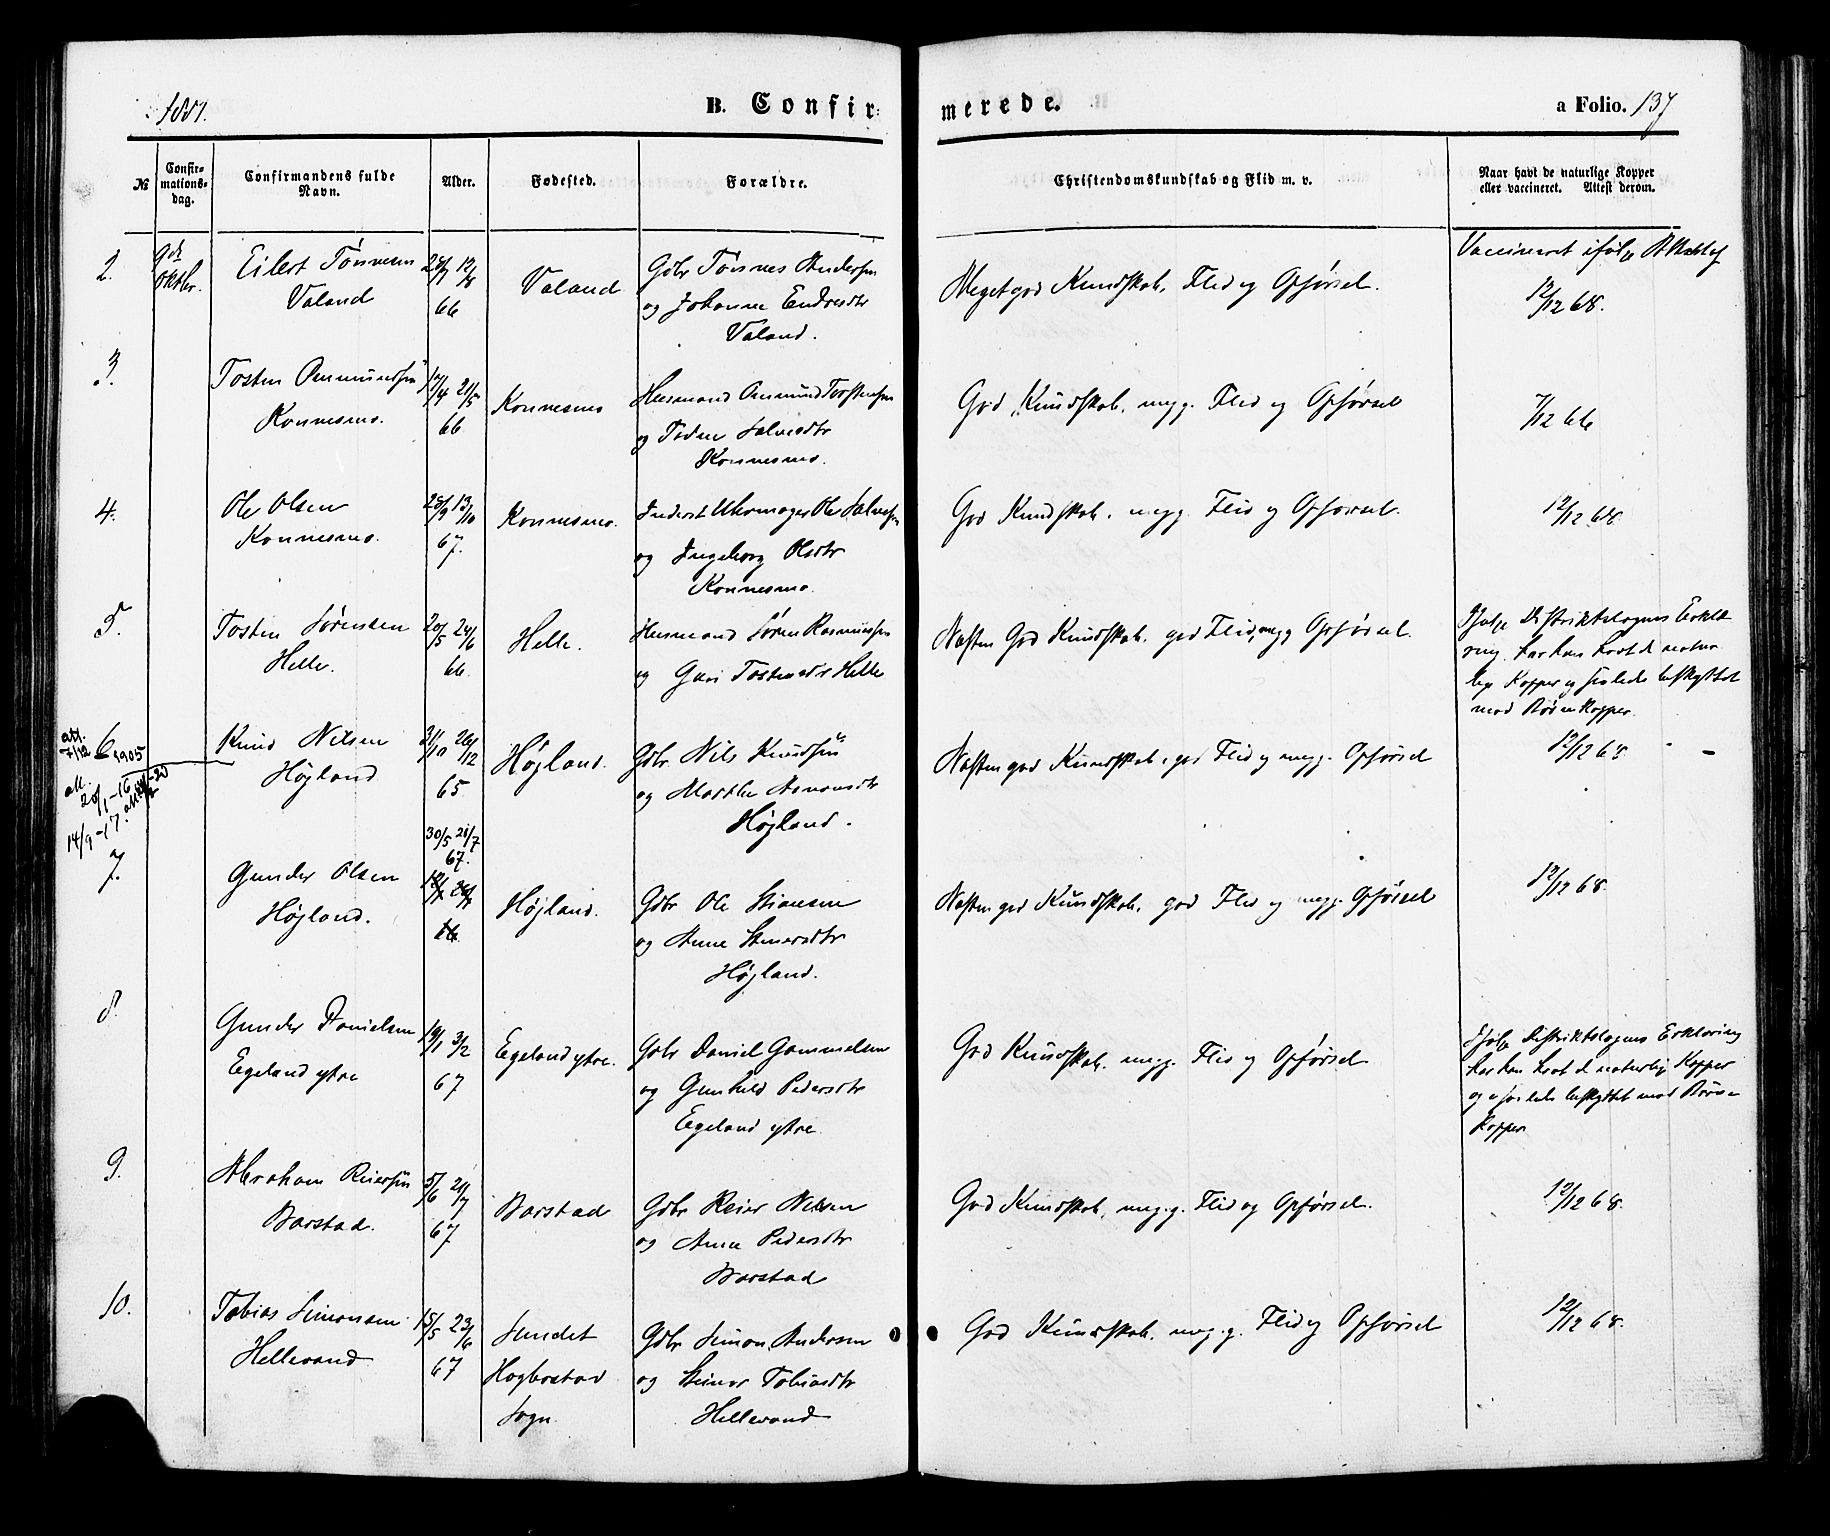 1881.
B. Confir-
merede.
a Folio. 137
№
Confir-
mations-
dag.
Confirmandens fulde
Navn.
Alder.
Fødested.
Forældre.
Christendomskundskab og Flid m. v.
Naar havt de naturlige Kopper
eller vaccineret. Attest derom.
2.
9de
Oktbr.
Eilert Tønnesen
Valand
66
Valand
Gdbr Tønnes Andersen
og Johanne Endresdtr
Valand.
Meget god Kundskab, Flid og Opførsel.
Vaccineret ifølge Attest af
12/12 68.
3.
Tosten Ommundsen
Konnesmo.
17/4 21/5
66
Konnesmo
Husmand Ommund Torstensen
og Salvesdtr
Konnesmo.
God Kundskab, meg. g. Flid og Opførsel
7/12 66
4.
Ole Olsen
Konnesmo.
28/9 13/10
67.
Konnesmo.
Inderst Uhrmager Ole Salvesen
og Ingeborg Olsdtr
Konnesmo.
God Kundskab, meg g. Flid og Opførsel.
12/12 68.
5.
Tosten Sørensen
Helle.
20/5 24/6
66.
Helle.
Husmand Søren Rasmussen
og Guri Tostensdtr Helle
Næsten God Kundskab, god Flid, meg g Opførsel.
Ifølge Distriktslægens Erklæ
ring har han havt de natur
lige Kopper og saaledes beskyttet
mod Børnekopper.
att.
7/12 1905
6
att.
20/1-16
14/9-17.
Knud Nilsen
Højland
31/10 26/12
65
Højland.
Gdbr. Nils Knudsen
og Marthe Aanonsdtr
Højland.
Næsten god Kundskab, god Flid og meg g. Opførsel
12/12 68.
7.
Gunder Olsen
Højland.
30/5 21/7
67.
66
Højland.
Gdbr Ole Stiansen
og Anne Steinersdtr
Højland.
Næsten god Kundskab, god Flid og meg g. Opførsel
12/12 68.
8.
Gunder Danielsen
Egeland ytre
19/1 3/2
67
Egeland ytre.
Gdbr Daniel Gammelsen
og Gunhild Pedersdtr
Egeland ytre.
God Kundskab, meg g. Flid og Opførsel
Ifølge Distriktslægens Erklæring
har han havt de naturlig Kopper
og saaledes beskyttet mod Børne
kopper
9.
Abraham Reiersen
Barstad.
5/6 21/7
67
Barstad
Gdbr Reier Nilsen
og Anne Pedersdtr
Barstad
God Kundskab, meg. g. Flid og Opførsel.
12/12 68.
10.
Tobias Simonsen
Hellevand
15/5 23/6
67
Sundet
Hægbostad
Sogn.
Gdbr Simon Andersen
og Steiner Tobiasdtr
Hellevand
God Kundskab, meg. g. Flid og Opførsel
12/12 68.